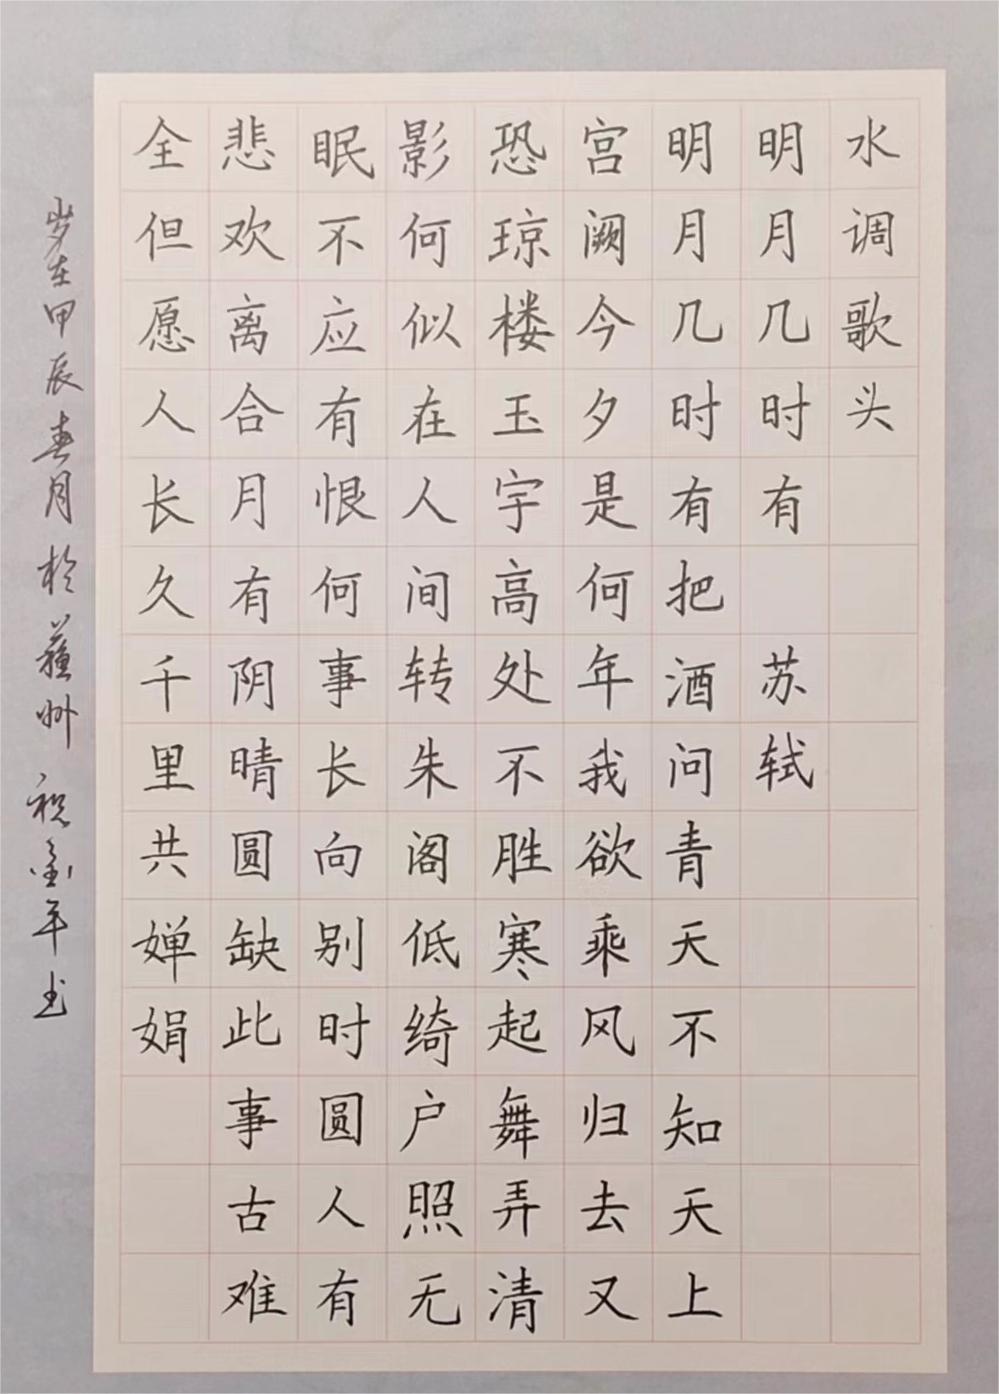 水调歌头
明月几时有 苏轼
明月几时有把酒问青天不知天上
宫阙今夕是何年我欲乘风归去又
恐琼楼玉宇高处不胜寒起舞弄清
影何似在人间转朱阁低绮户照无
眠不应有恨何事长向别时圆人有
悲欢离合月有阴晴圆缺此事古难
全但愿人长久千里共婵娟
岁在甲辰春月於蘇州 祝金年书